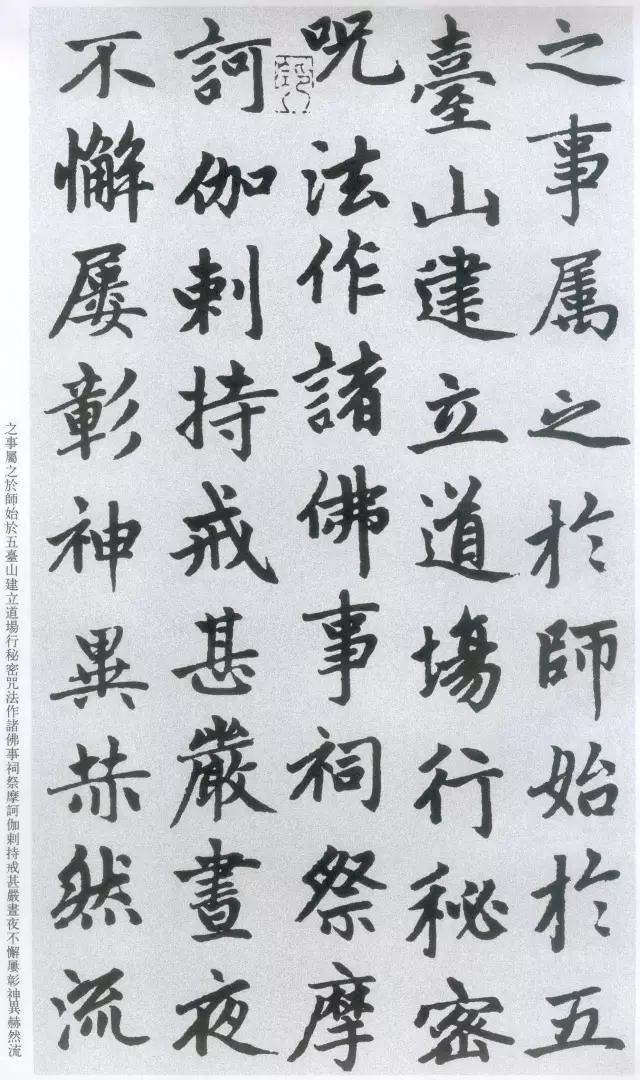 之事属之於師始於五
臺山建立道場行秘密
呪法作諸佛事祠祭摩
訶伽剌持戒甚嚴晝夜
不懈屢彰神異赫然流
之事屬之於師始於五臺山建立道場行秘密咒法作諸佛事祠祭摩訶伽剌持戒甚嚴晝夜不懈屢彰神異赫然流